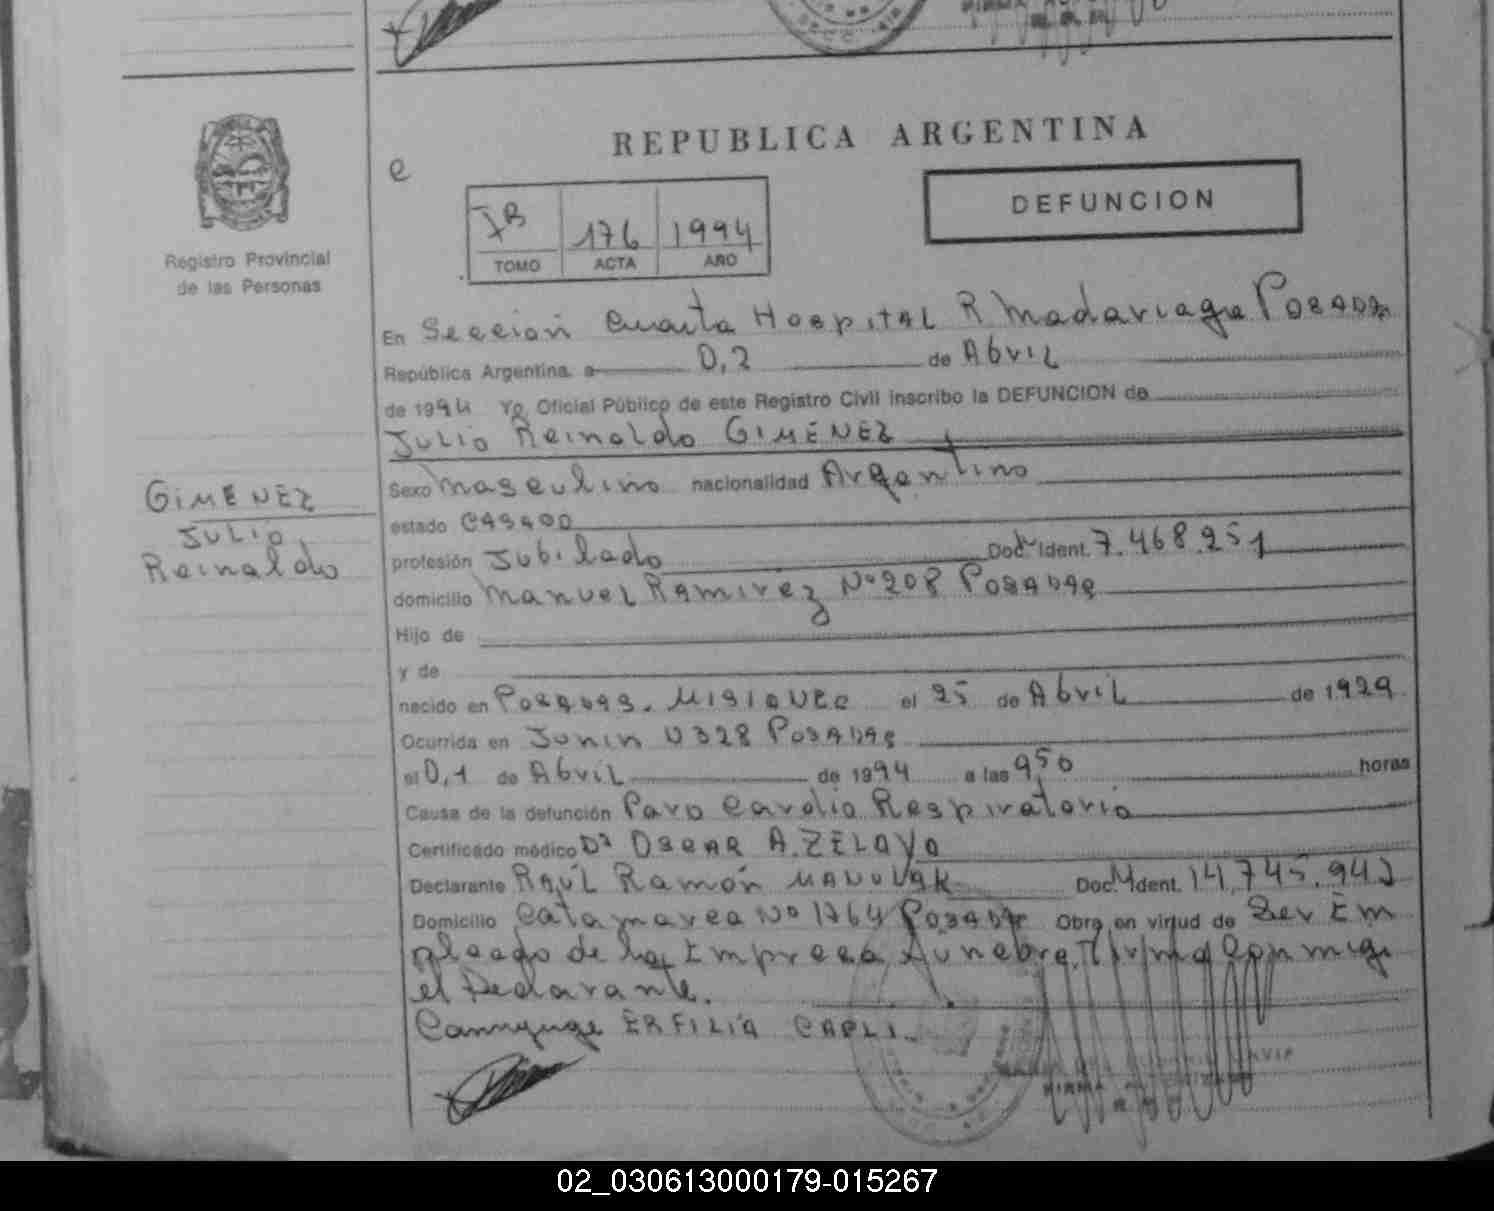 REPUBLICA ARGENTINA
e
DEFUNCION
IB 176 1994
TOMO ACTA AÑO
Registro Provincial
de las Personas
En Sección Cuarta Hospital R Madariaga Posadas
República Argentina a 0,2 de Abril
de 1994 Yo Oficial Público de este Registro Civil inscribo la DEFUNCION de
Julio Reinaldo GIMENEZ
Sexo Masculino nacionalidad Argentino
GIMENEZ
JULIO
Reinaldo
estado CASADO
profesión Jubilado Doc. Ident. 7.468.251
domicilio Manuel Ramirez Nº 208 POSADAS
Hijo de
y de
nacido en Posadas. Misiones el 25 de Abril de 1929
Ocurrida en Junin 0328 Posadas
el 0,1 de Abril de 1994 a las 950 horas
Causa de la defunción Paro Cardio Respiratorio
Certificado médico Dr OSCAR A. ZELAYA
Declarante RAÚL Ramón Doc. Ident. 14.745.942
Domicilio Catamarca Nº 1764 Posadas Obra en virtud de Ser Em
pleado de la Empresa Funebre. Firma Conmigo
el Declarante.
ERFILIA
FIRMA
02_030613000179-015267